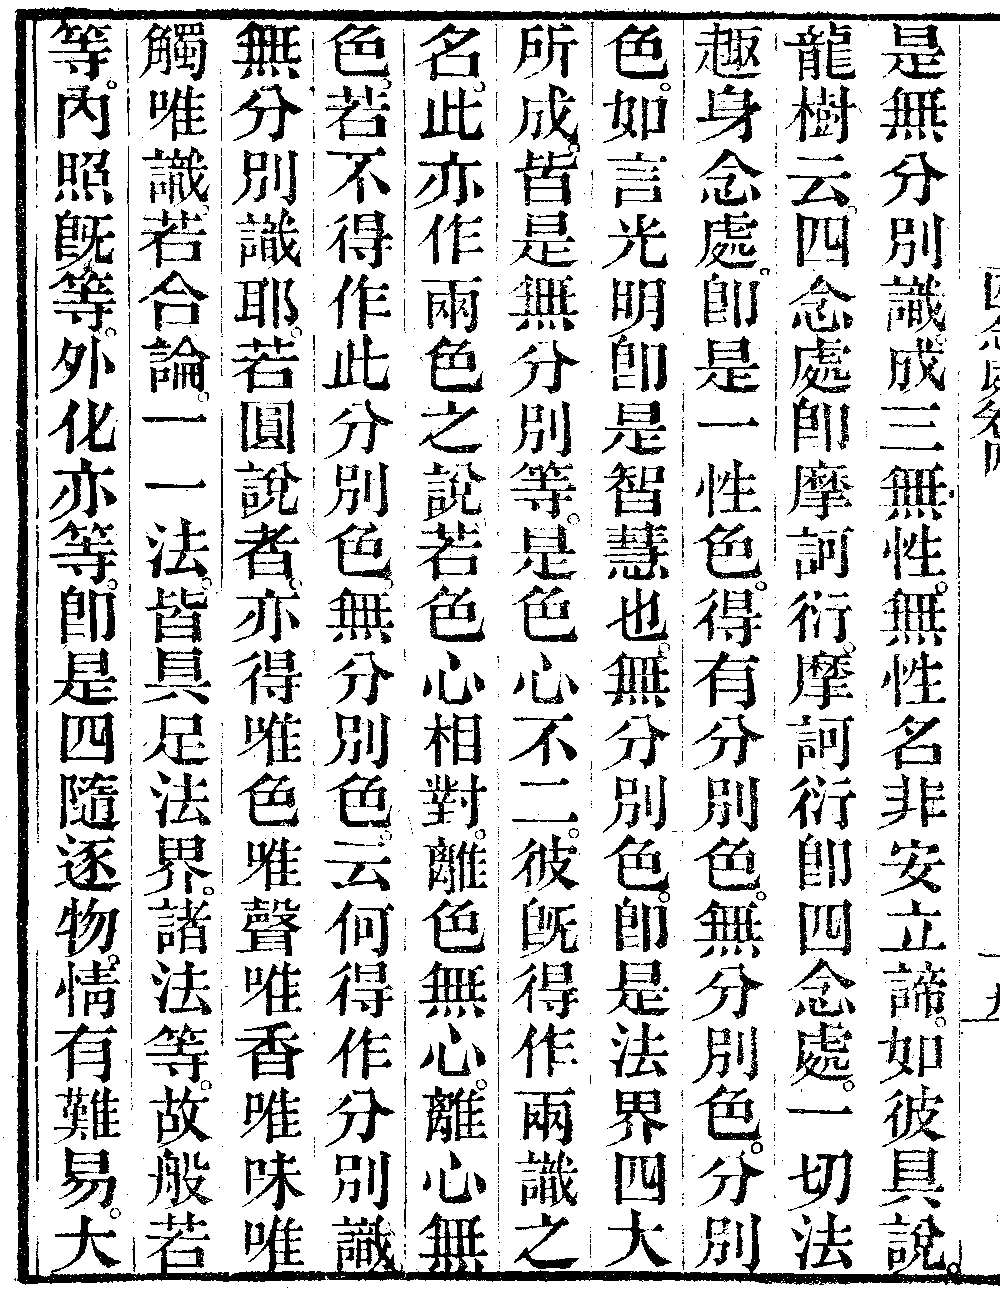 是無分別識成三無性無性名非安立諦如彼具說
龍樹云四念處卽摩訶衍摩訶衍卽四念處一切法
趣身念處卽是一性色得有分別色無分別色分別
色如言光明卽是智慧也無分別色卽是法界四大
所成皆是無分別等是色心不二彼旣得作兩識之
名此亦作兩色之說若色心相對離色無心離心無
色若不得作此分別色無分別色云何得作分別識
無分別識耶若圓說者亦得唯色唯聲唯香唯味唯
觸唯識若合論一一法皆具足法界諸法等故般若
等內照旣等外化亦等卽是四隨逐物情有難易大